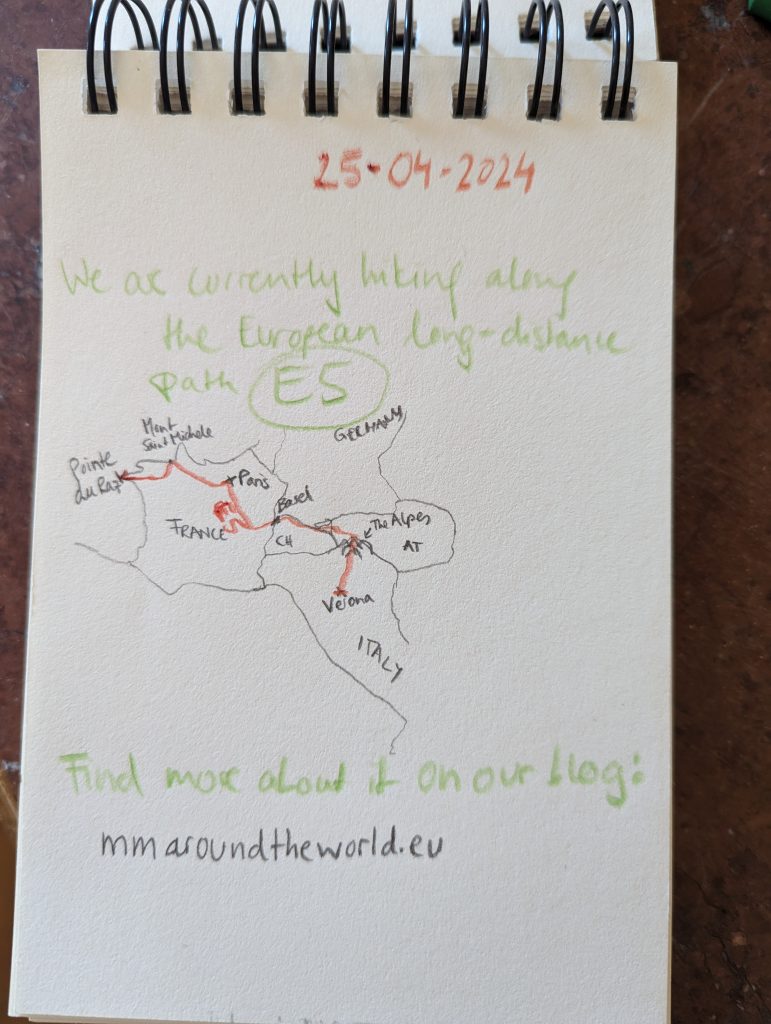 25-04-2024
We are currently hiking along
the European long-distance
path E5
GERMANY
Mont
Saint Michele
Pointe
du Raz
Paris
Basel
FRANCE
CH
The Alpes
AT
Verona
ITALY
Find more about it on our blog:
mmaroundtheworld.eu